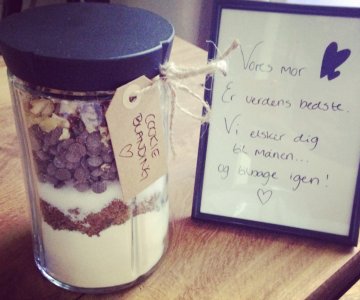 Vores mor
Er verdens bedste.
Vi elsker dig
til månen...
og tilbage igen!
COOKIE
BLANDING